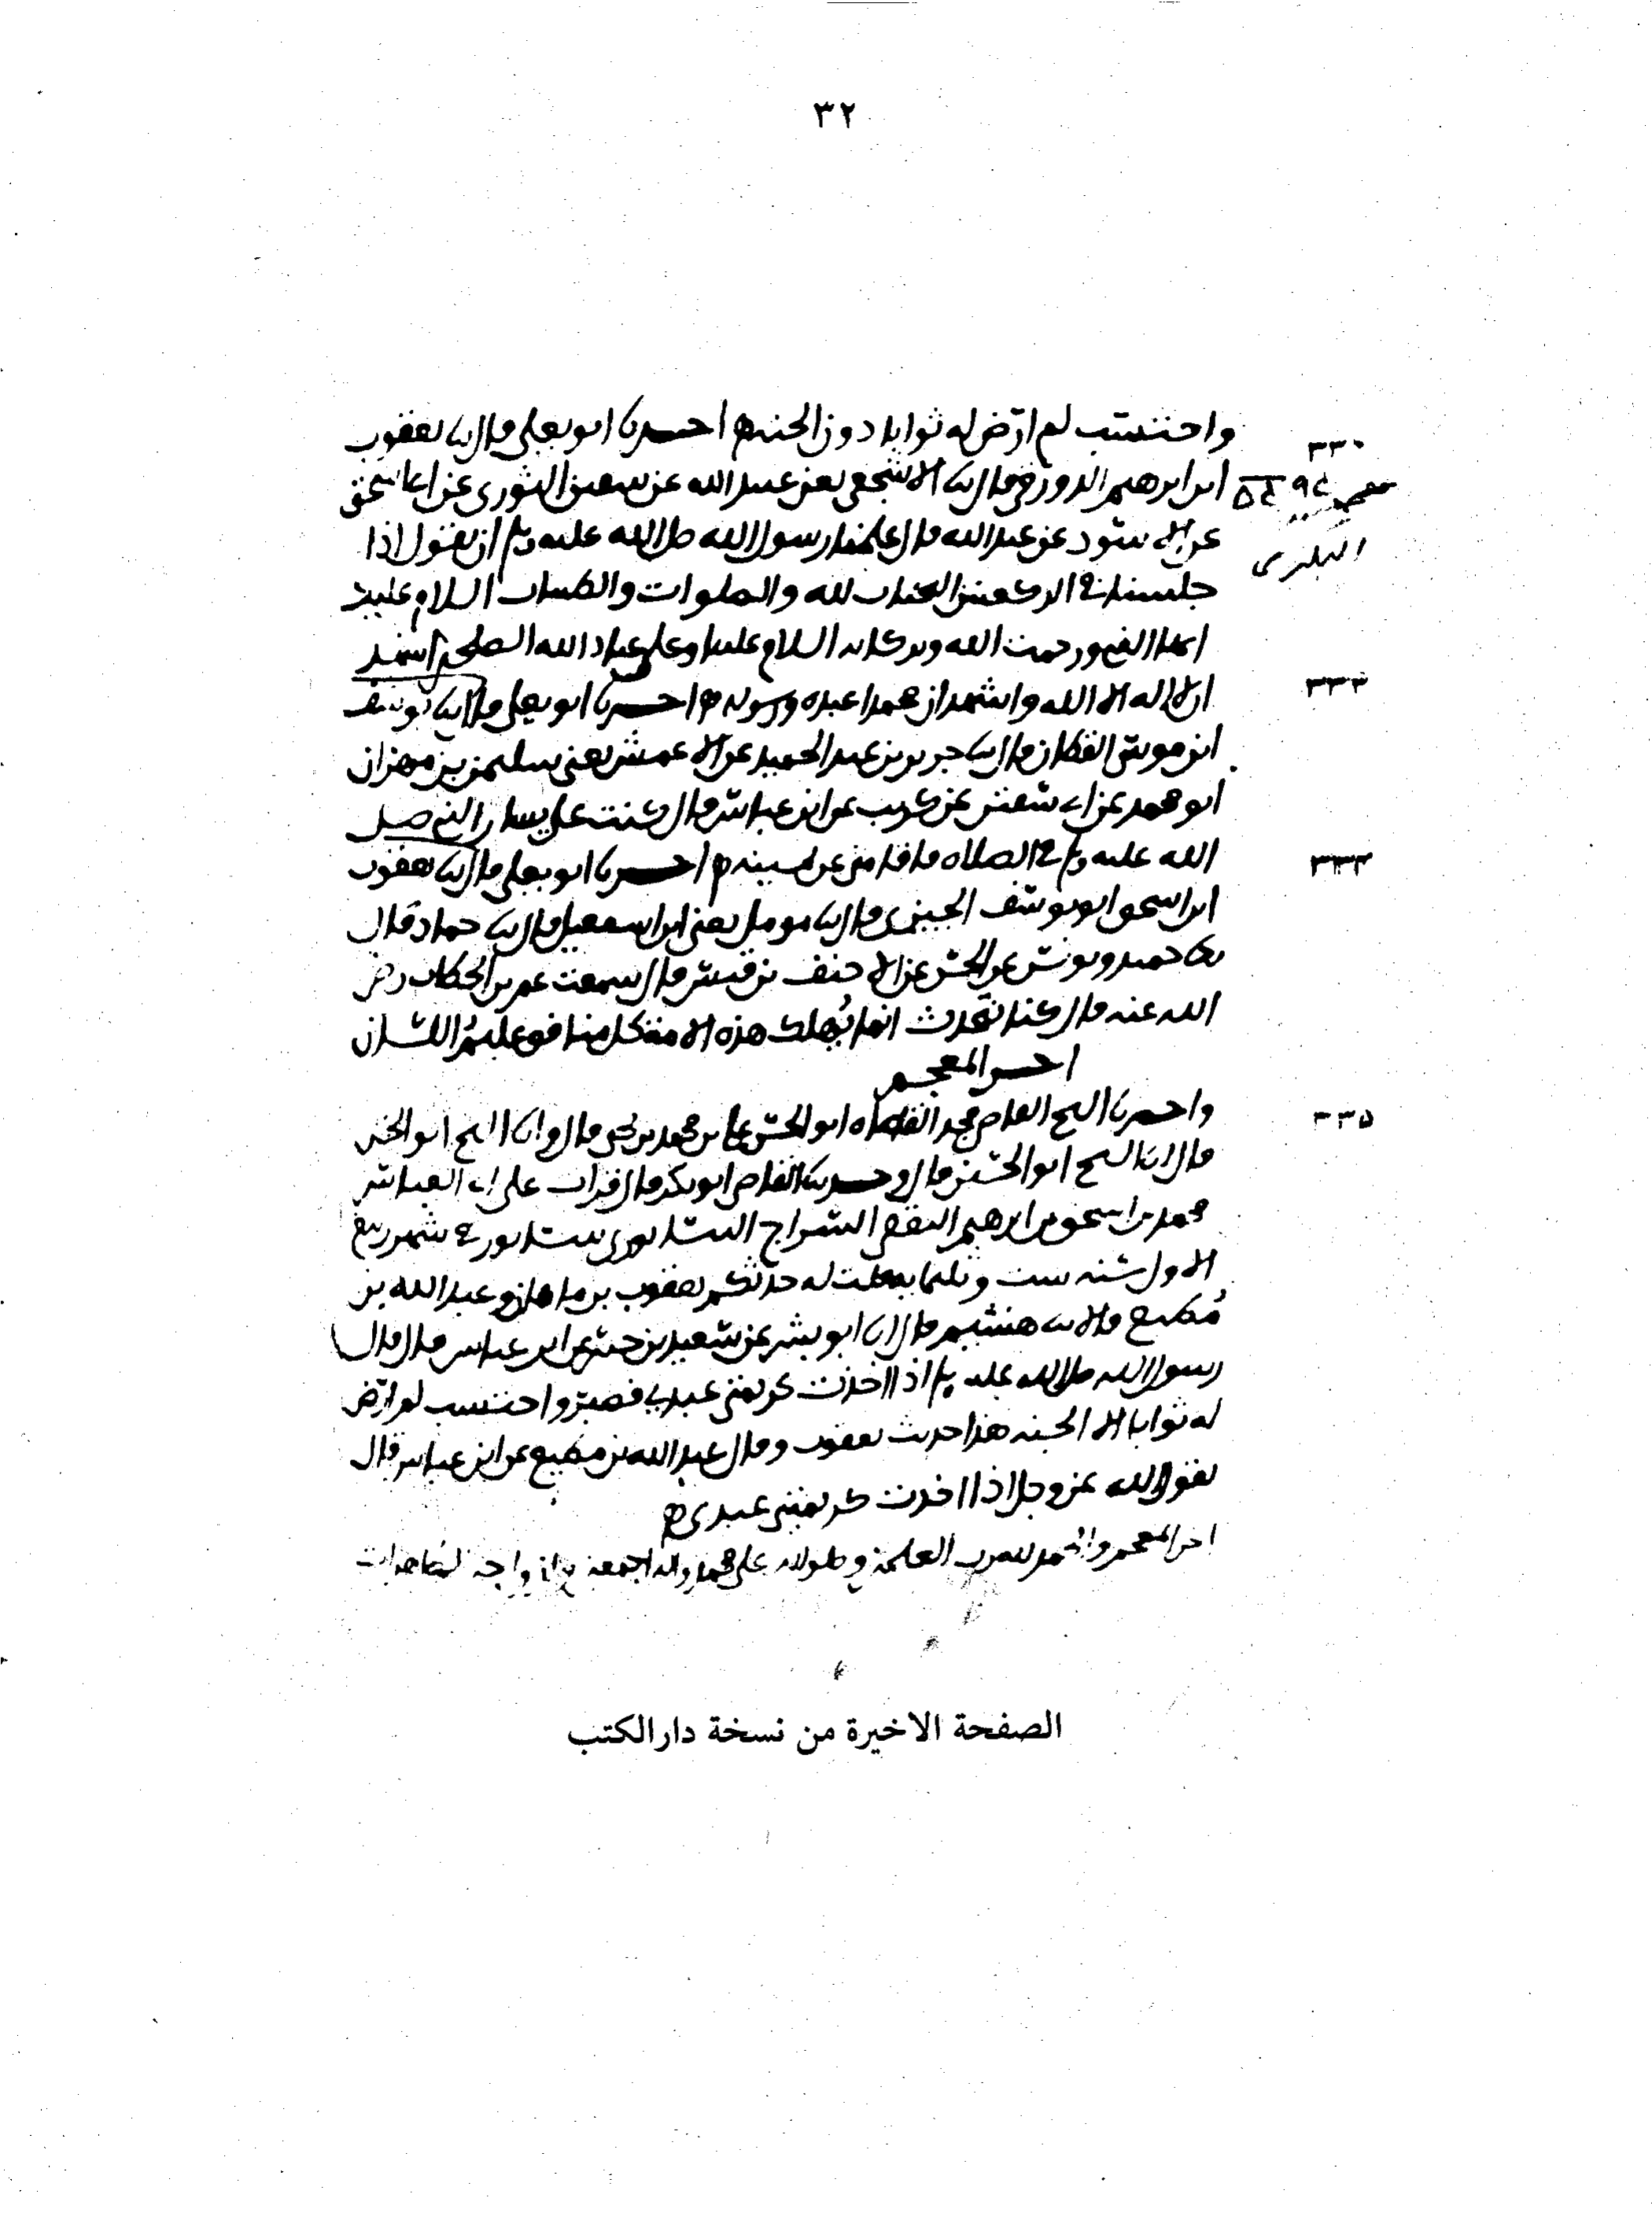 ٣٢
واحتسب لم ارض له ثوابا دون الجنه اخبرنا ابو يعلى قال ثنا يعقوب
٣٣٠
ابن ابرهيم الدورقي قال ثنا الاشجعي يعني عبيد الله عن سفين الثوري عن ابي اسحق
معجم
عن الاسود عن عبد الله قال علمنا رسول الله صلى الله عليه وسلم ان نقول اذا
جلسنا في الركعتين التحيات لله والصلوات والطيبات السلام عليك
ايها النبي ورحمت الله وبركاته السلام علينا وعلى عباد الله الصلحين اشهد
ان لا اله الا الله واشهد ان محمدا عبده ورسوله اخبرنا ابو يعلى قال ثنا يوسف
٣٣٣
ابن موسى القطان قال ثنا جرير بن عبد الحميد عن الاعمش يعني سليمن بن مهران
ابو محمد عن سفين عن كريب عن ابن عباس قال كنت على يسار النبي صلى
الله عليه وسلم في الصلاه فاقامني عن يمينه اخبرنا ابو يعلى قال ثنا يعقوب
٣٣٤
ابن اسحق ابو يوسف قال ثنا مومل يعني ابن اسمعيل قال ثنا حماد قال
ثنا حميد ويونس عن الحسن عن الاحنف بن قيس قال سمعت عمر بن الخطاب رضي
الله عنه قال كنا نتحدث انما يهلك هذه الامة كل منافق عليم اللسان
اخر المعجم
واخبرنا الشيخ القاضي ابو الحسن علي بن محمد بن قال وانا الشيخ ابو الحسن
٣٣٥
قال انا الشيخ ابو الحسن قال وحدثنا القاضي ابو بكر قال قرات على ابي العباس
محمد بن اسحق بن ابرهيم الثقفي السراج النيسابوري بنيسابور في شهر ربيع
الاول سنه ست وثلثمايه قلت له حدثكم يعقوب بن ماهان وعبد الله بن
مطيع قالا ثنا هشيم قال انا ابو بشر عن سعيد بن جبير عن ابن عباس قال قال
رسول الله صلى الله عليه وسلم اذا اخذت كريمتي عبدي فصبر واحتسب لم ارض
له ثوابا الا الجنه هذا حديث يعقوب وقال عبد الله بن مطيع عن ابن عباس قال
يقول الله عز وجل اذا اخذت كريمتي عبدي
اخر المعجم والحمد لله رب العلمين وصلى الله على محمد واله اجمعين وازواجه الطاهرات
الصفحة الاخيرة من نسخة دار الكتب